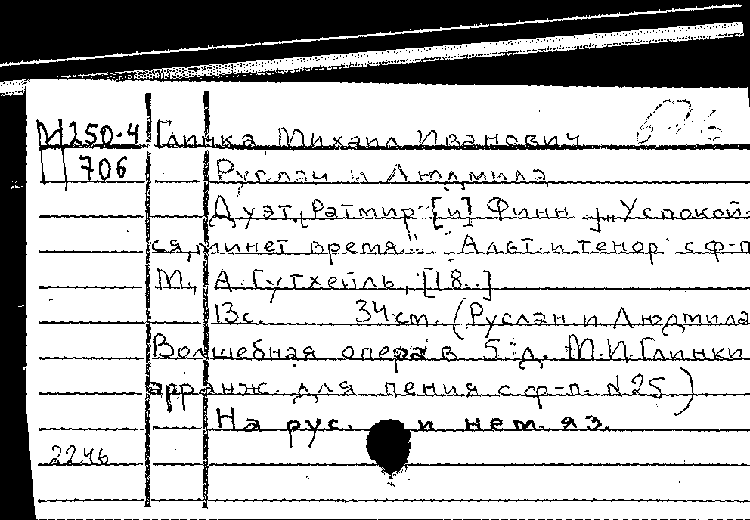 М250-4 Глинка Михаил Иванович
П 706 Руслан и Людмила
Дуэт (Ратмир [и] Финн) „Успокой-
ся, минет время". Альт и тенор с ф-п
М., А. Гутхейль, [18..]
13с. 34 см. (Руслан и Людмила
Волшебная опера в 5 д. М.И. Глинки
арранж. для пения с ф-п. N 25)
На рус. и нем. яз.
2246